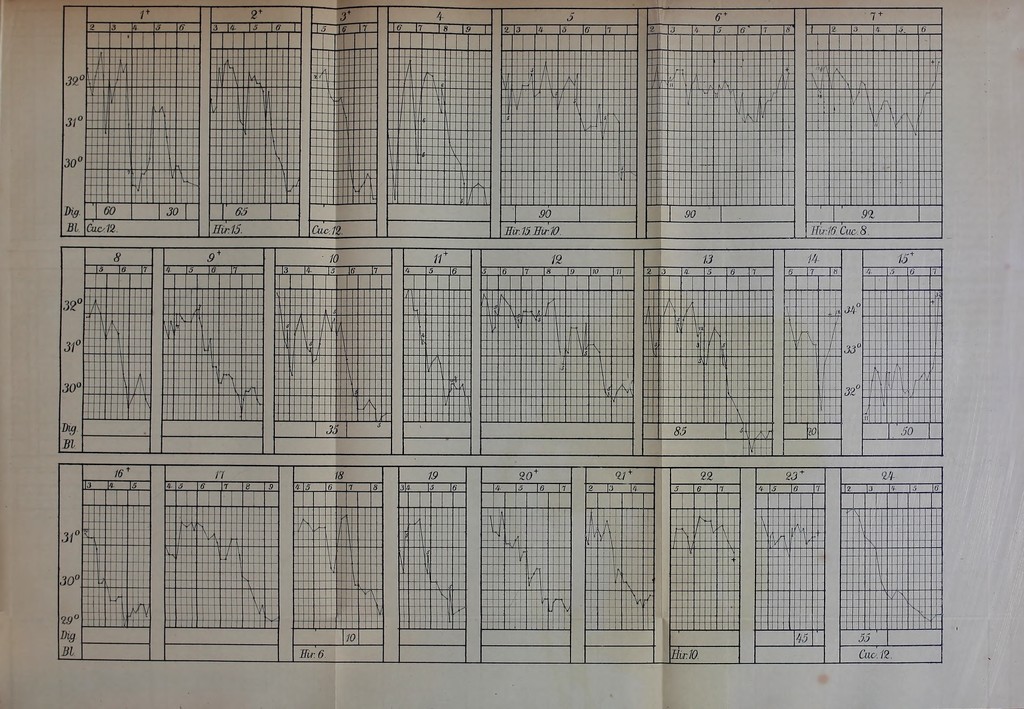 1+ 2+ 3+ 4 5 6+ 7+
2 3 4 5 6 3 4 5 6 5 6 7 6 7 8 9 2 3 4 5 6 7 2 3 4 5 6 7 8 1 2 3 4 5 6
32°
31°
30°
Dig. 60 30 65 90 90 92
Bl. Cuc. 12. Hir. 15. Cuc. 12. Hir. 15 Hir. 10. Hir. 16 Cuc. 8.
8 9+ 10 11+ 12 13 14 15+
5 6 7 4 5 6 7 3 4 5 6 7 4 5 6 5 6 7 8 9 10 11 2 3 4 5 6 7 6 7 8 4 5 6 7
32° 34°
31° 33°
30° 32°
Dig. 35 85 20 50
Bl
16+ 17 18 19 20+ 21+ 22 23+ 24
3 4 5 4 5 6 7 8 9 4 5 6 7 8 3 4 5 6 4 5 6 7 2 3 4 5 6 7 4 5 6 7 2 3 4 5 6
31°
30°
29°
Dig 10 45 55
Bl. Hir. 6 Hir. 10. Cuc. 12.